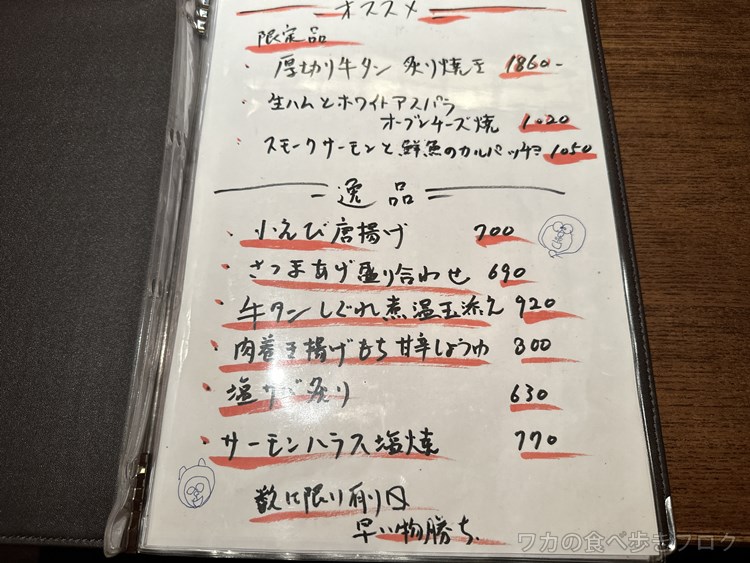 オススメ
限定品
・厚切り牛タン 炙り焼き 1860-
・生ハムとホワイトアスパラ
オーブンチーズ焼 1020
・スモークサーモンと鮮魚のカルパッチョ 1050
逸品
・小えび唐揚げ 700
・さつまあげ盛り合わせ 690
・牛タンしぐれ煮温玉添え 920
・肉巻き揚げもち甘辛しょうゆ 800
・塩サバ炙り 630
・サーモンハラス塩焼 770
数に限り有り〼
早い物勝ち.
ワカの食べ歩きブログ